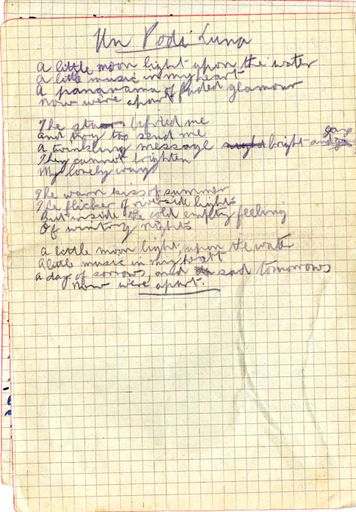 Un Podi Luna
A little moon light upon the water
A little music in my heart
A panarama of faded glamour
Now were apart
The stars befried me
And try to send me
A twinkling message bright and gay
They cannot brighten
My lonely way
The warm kiss of summer
The flicker of riverside lights
But inside the cold empty feeling
Of wintry nights
A little moon light upon the water
A little music in my heart
A day of sorrows, and sad tomorrows
Now were apart.